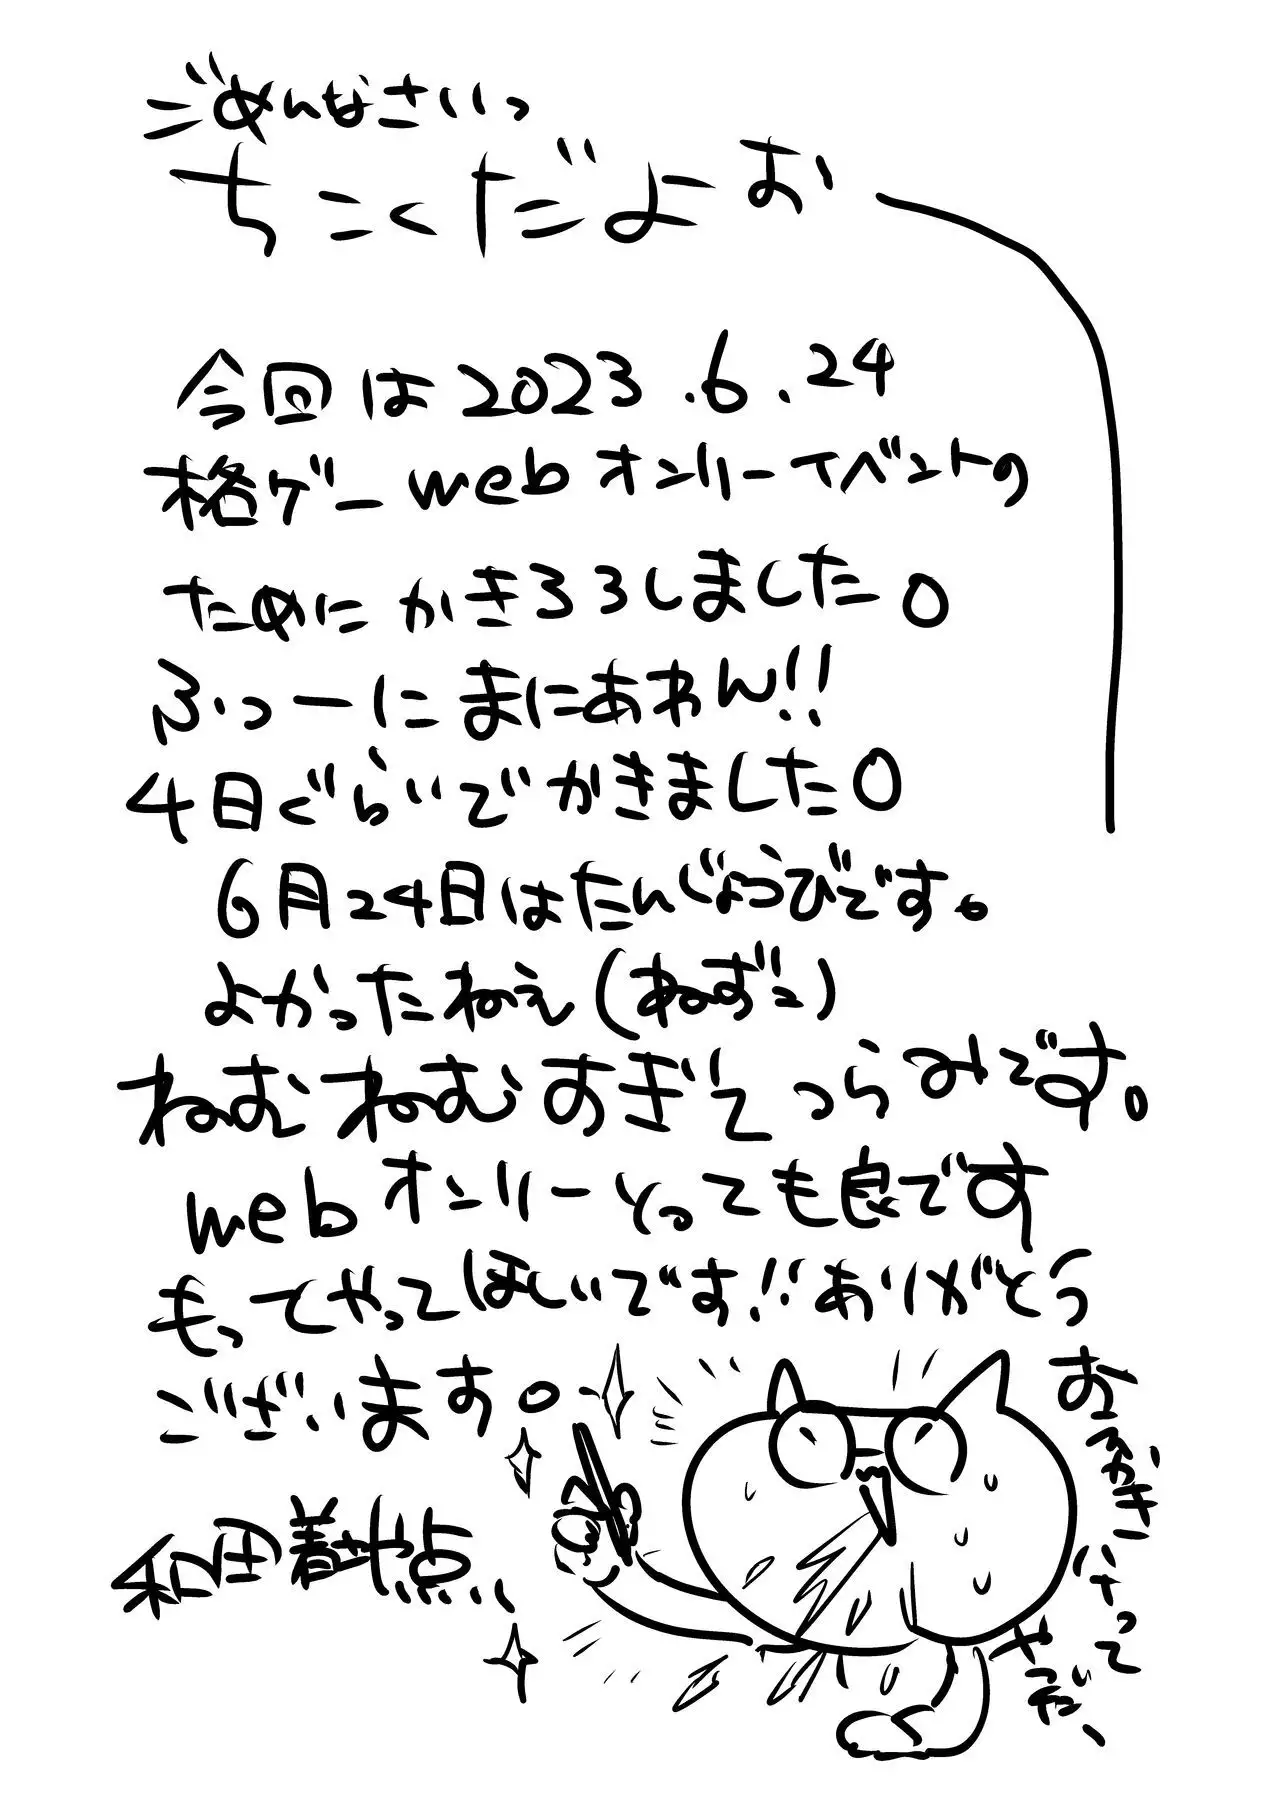 ごめんなさいっ
ちこくだよぉ
今回は2023.6.24
格ゲーwebオンリーイベントの
ためにかきろろしました。
ふつーにまにあわん!!
4日ぐらいでかきました。
6月24日はたんじょうびです。
よかったねぇ(ねずこ)
ねむねむすぎてつらみです。
webオンリーとっても良です
もってやってほしいです!!ありがとう
ございます。
和田着